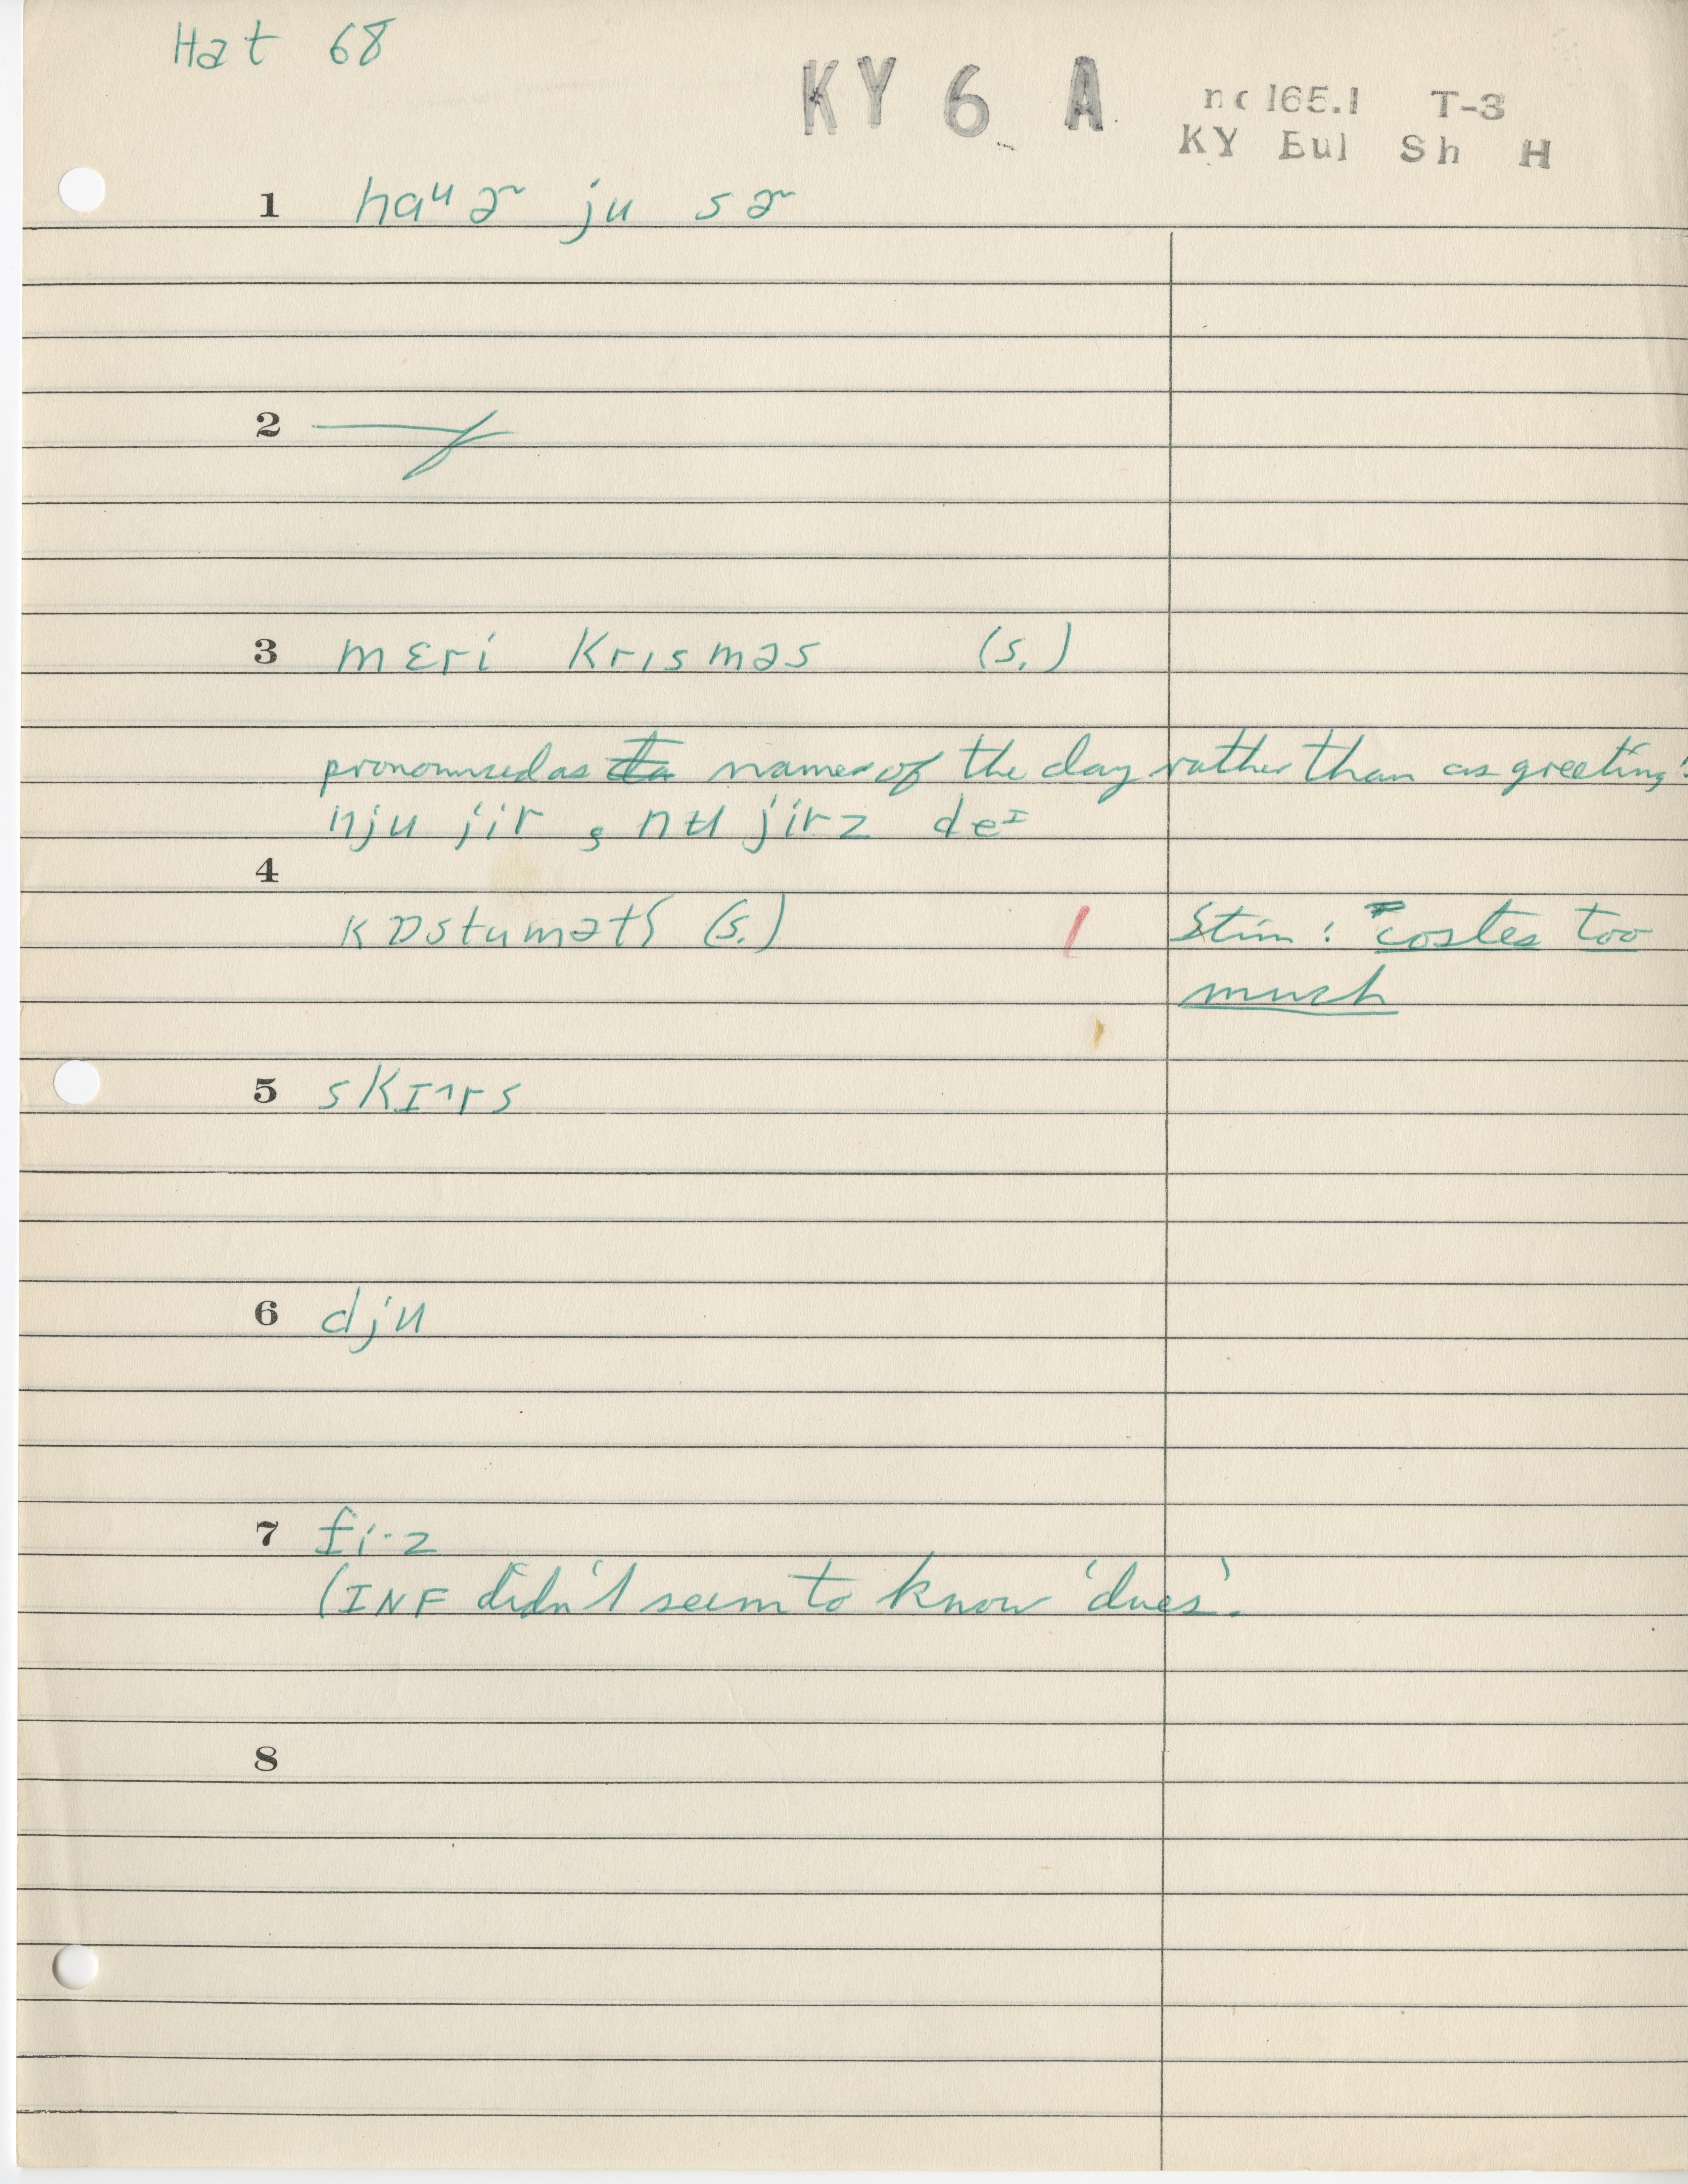 Hat 68
KY 6 A
nc 165.1 T-3
KY Bul Sh H
1 haᵘɚ ju sɚ
2
3 mɛri krɪsməs (s.)
pronounced as names of the day rather than as greeting:
nju jir ; nʉ jirz deᶦ
4
kɒstumətʃ (s.) Stim: costes too
much
5 skɪ^rs
6 dju
7 fi·z
(INF didn't seem to know 'dues'.
8